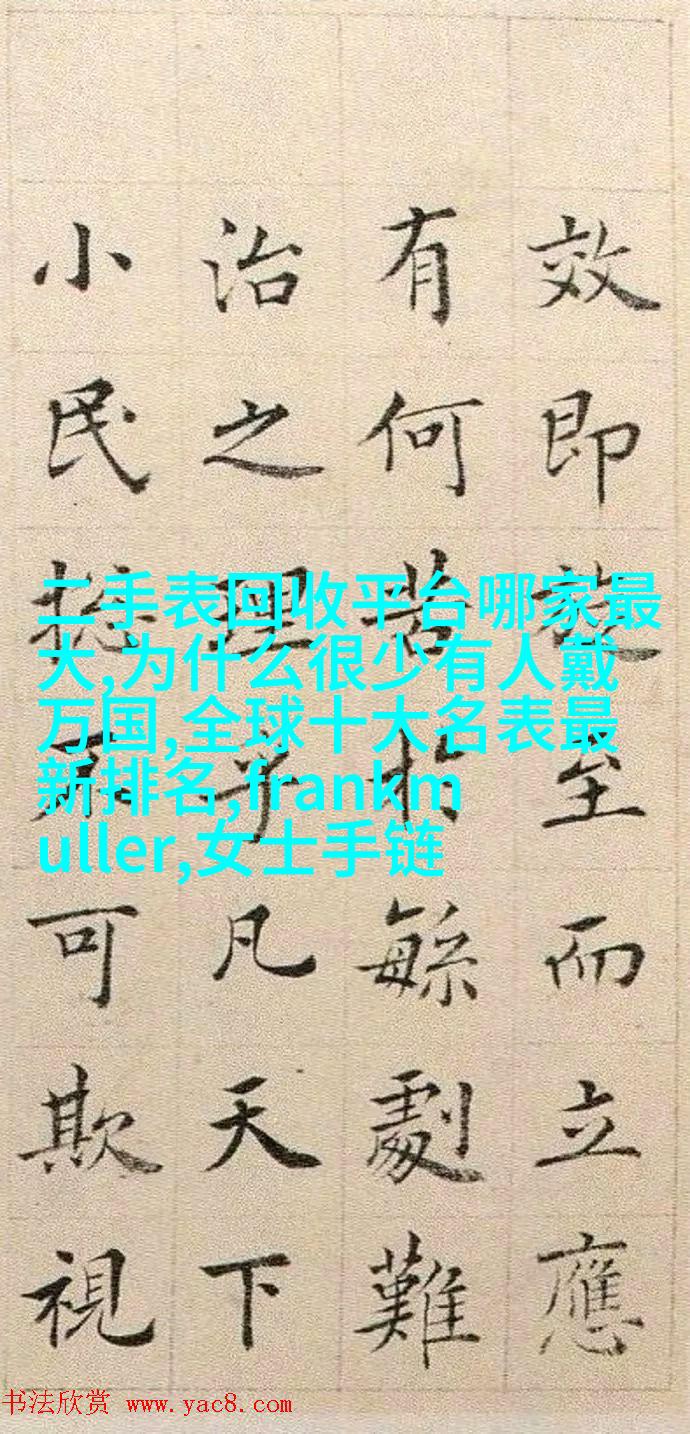 效即至而立應
有何苦扵緐劇難
治之理乎凡天下
小民可欺視
二手表回收平台哪家最
大,为什么很少有人戴
万国,全球十大名表最
新排名,frankm
uller,女士手链
书法欣赏 www.yac8.com